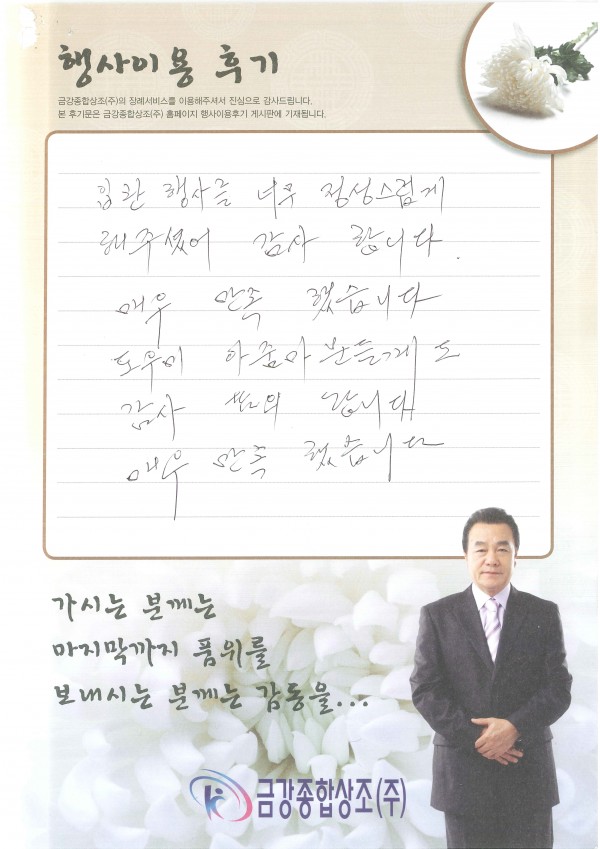 행사이용 후기
금강종합상조(주)의 장례서비스를 이용해주셔서 진심으로 감사드립니다.
본 후기문은 금강종합상조(주) 홈페이지 행사이용후기 게시판에 기재됩니다.
입관 행사를 너무 정성스럽게
해주셨어 감사 합니다.
매우 만족 했습니다
도우미 아줌마 분들께도
감사 합니다
매우 만족 했습니다
가시는 분께는
마지막까지 품위를
보내시는 분께는 감동을...
금강종합상조(주)